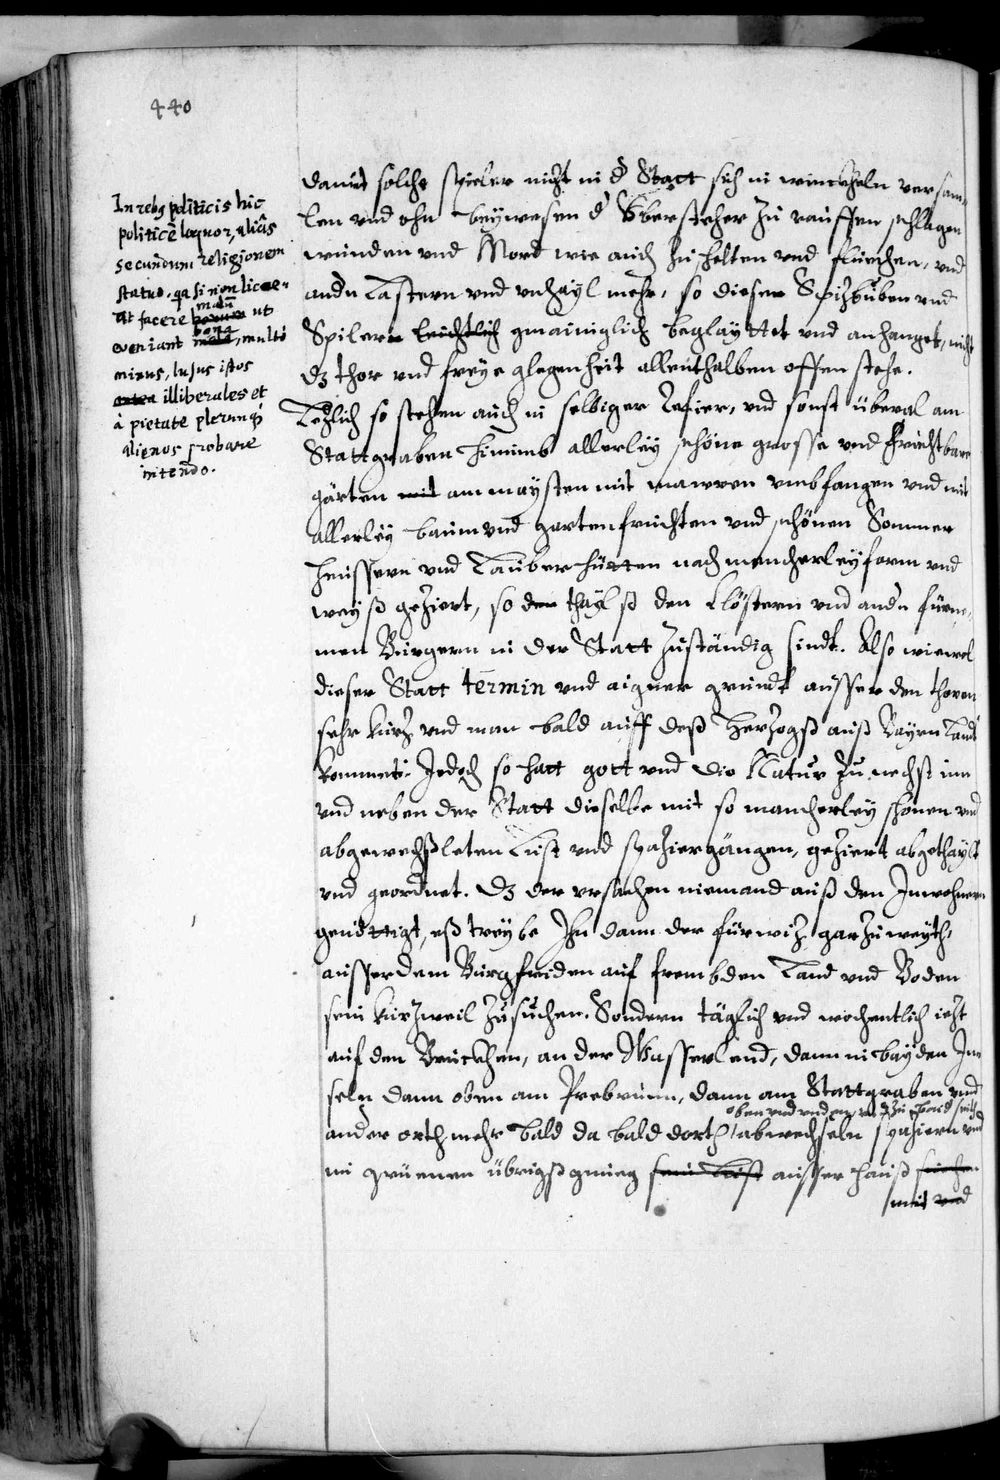 440
In rebg politicis hic
politicè loquor, aliâs
secundum religionem
statuo, qa si non lice-
at facere bonum malũ ut
eveniant mala bona, multò
minus, lusus istos
artea illiberales et
à pietate plerunqȝ
alienos probare
intendo.
damit solche spieler nicht in d Statt sich in winckheln versam-
len vnd ohn beywesen d Vbersteher zu rauffen schlagen
wunden vnd Mord wie auch zu schelten vnd fluechen, vnd
andn Lastern vnd vnhayl mehr, so diesen Spizbuben vnd
Spilern leichtlich gmainiglich beglayttet vnd anhanget, nicht
dz thor vnd freye glegenheit allenthalben offen stehe.
Lezlich so stehen auch in selbiger Refier, vnd sonst überal am
Stattgraben herumb allerley schöne grosse vnd fruchtbare
gärten mit am maysten mit mauren vmbfangen vnd mit
allerley baum vnd gartenfruchten vnd schönen Sommer
heussern vnd Lauberhütten nach mancherley form vnd
weyß geziert, so den thayls den Clöstern vnd andn fürne-
men Burgern in der Statt zuständig sindt. Also wiewol
dieser Statt termin vnd aigner grundt ausser den thoren
sehr kurz vnd man bald auff deß Herzogß auß Bayrn Landt
kommet: Jedoch so hatt gott vnd die Natur zu nechst inn
vnd neben der Statt dieselbe mit so mancherley schönen vnd
abgewechßleten Lust vnd spaziergängen, geziert abgethaylt
vnd geordnet. dz der vrsachen niemand auß den Inwohnern
genöttigt, eß treybe Ihn dann der fürwiz gar zu weyth,
ausser dem Burgfriden auf frembden Land vnd Boden
sein kurzweil zu suchen. Sondern täglich vnd wochentlich iezt
auf den Bruckhen, an der Wasserlend, dann in bayden In-
seln dann oben am Prebrunn, dann am Stattgraben vnd
oben vnd vnden, zu beed seits
ander orth mehr bald da bald dorth, abwechseln spaziern vnd
im grüenen übrigß gnueg sein Lust ausser hauß suchen
mit vnd